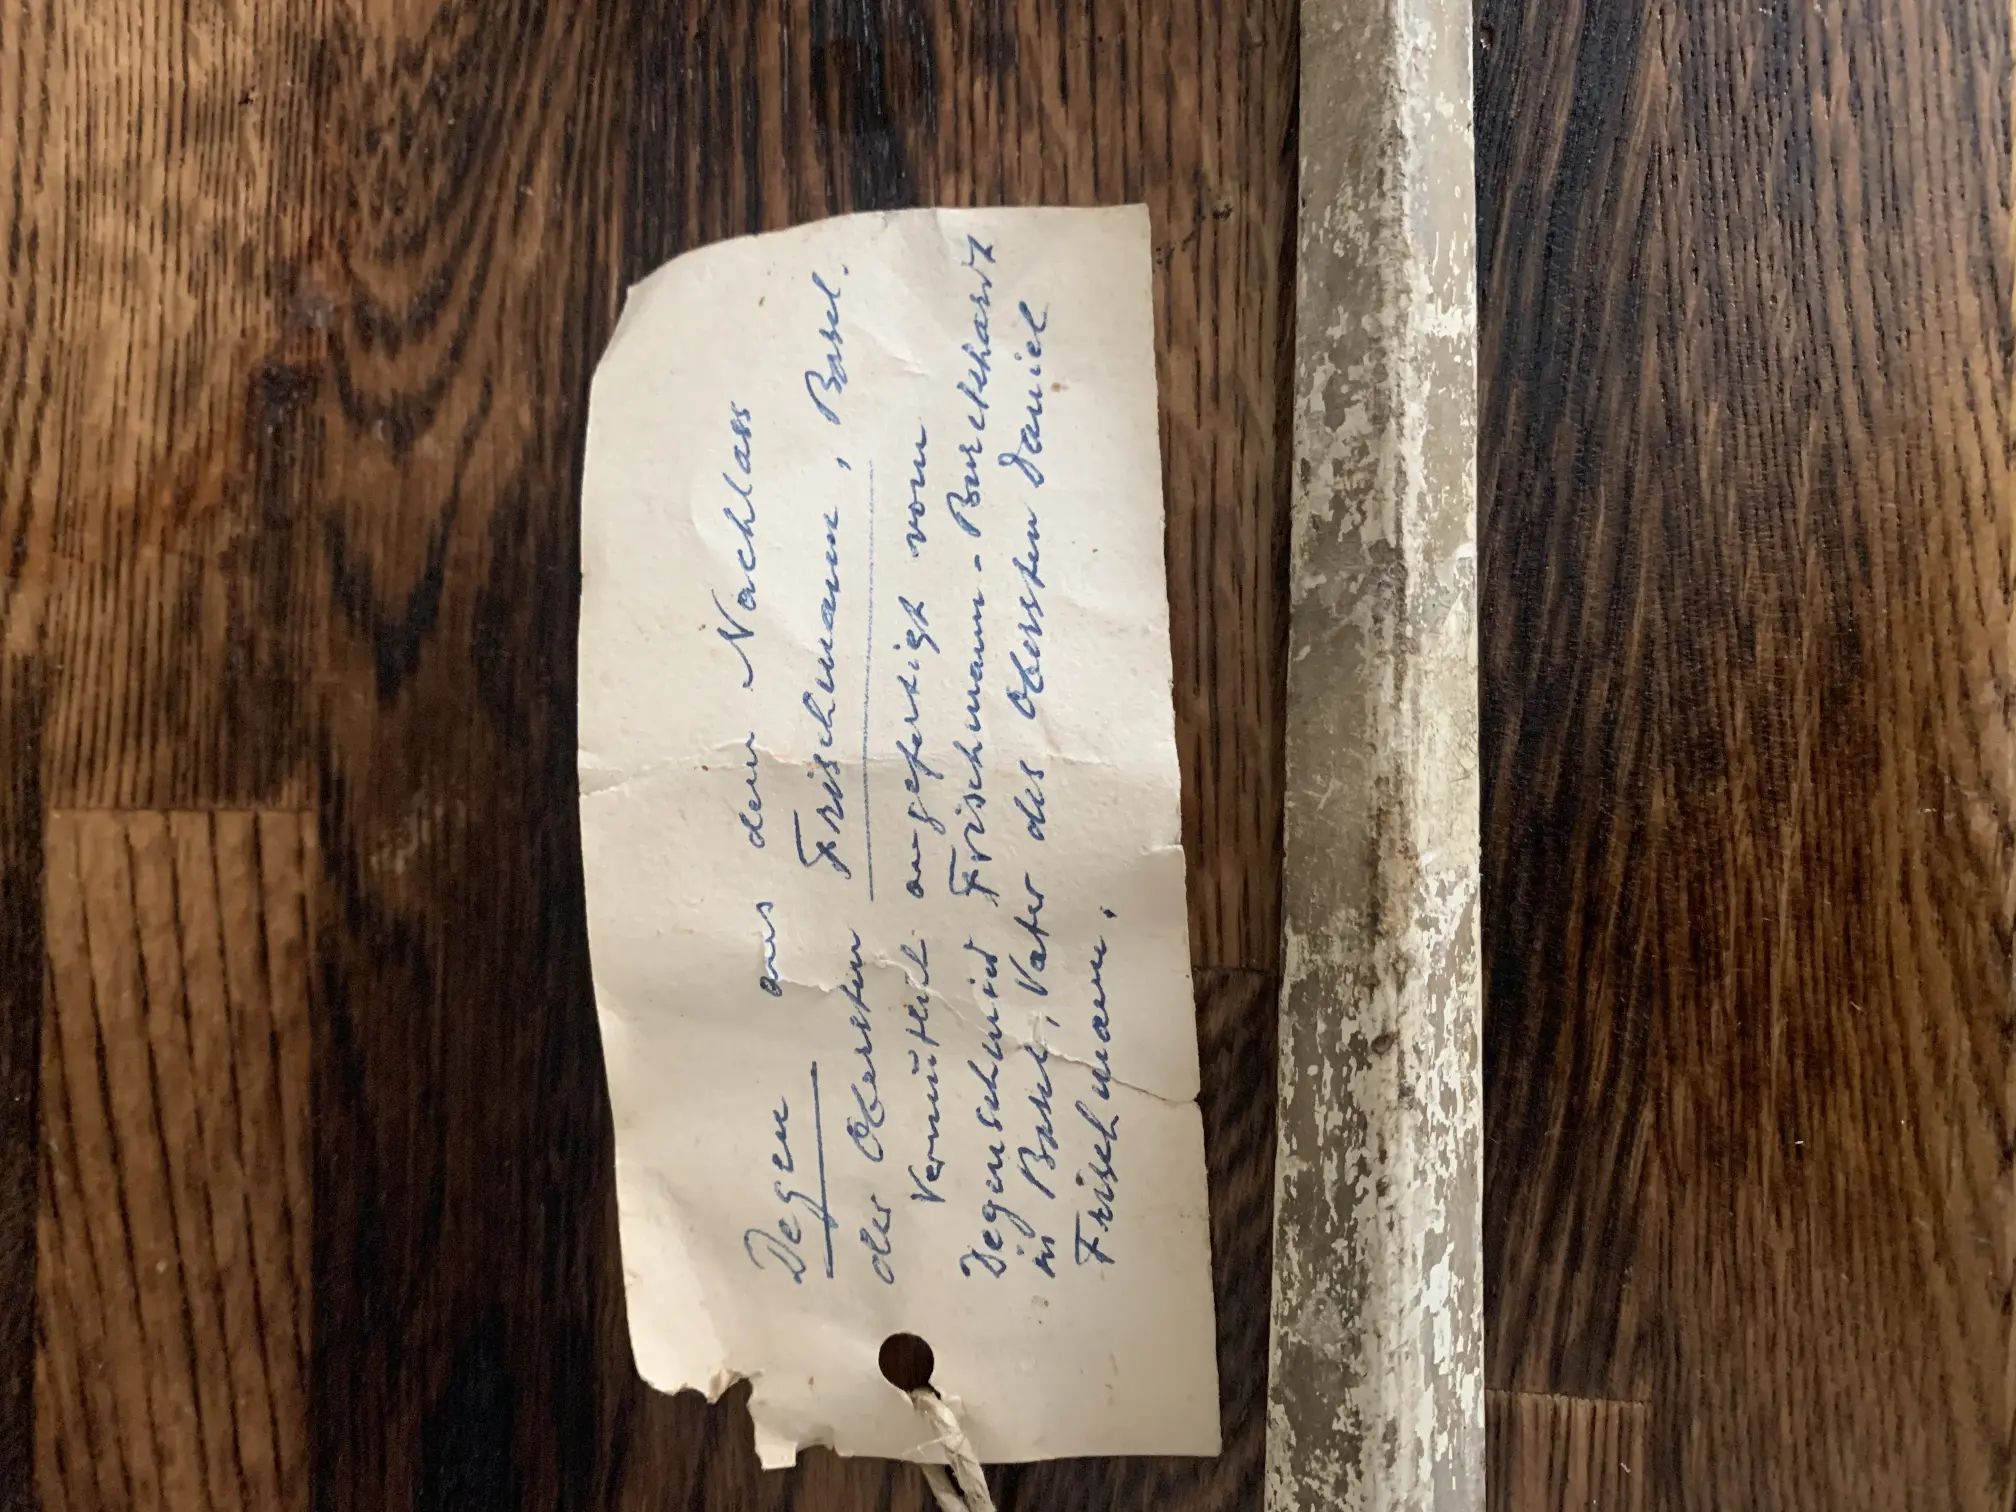 Degen aus dem Nachlass
der Obersten Frischmann, Basel.
Vermutlich angefertigt vom
Degenschmied Frischmann-Burckhardt
in Basel, Vater des Obersten Daniel
Frischmann.